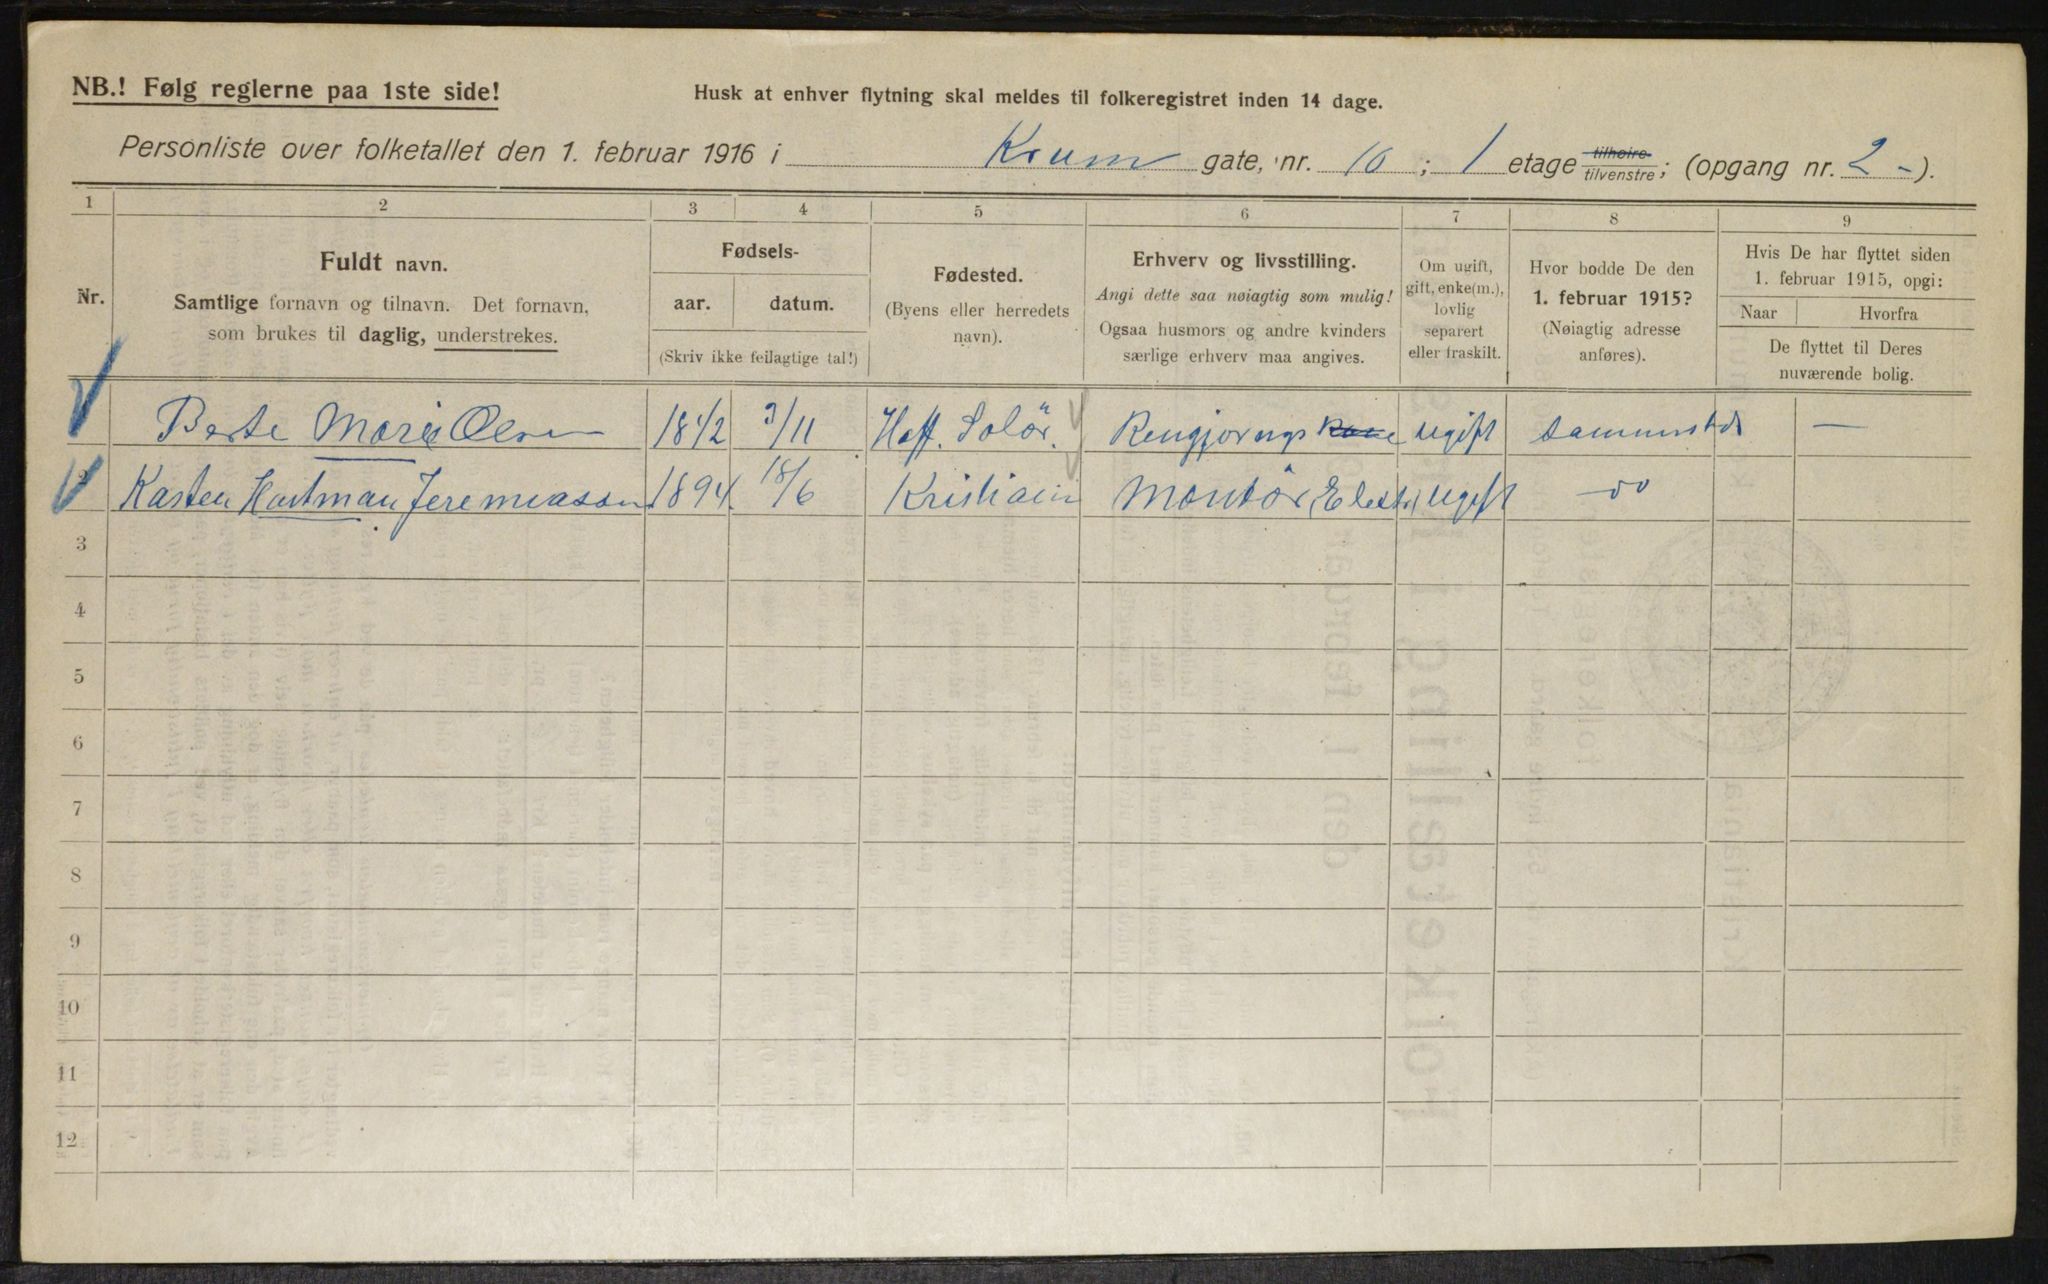 NB.! Følg reglerne paa 1ste side!
Husk at enhver flytning skal meldes til folkeregistret inden 14 dage.
Personliste over folketallet den 1. februar 1916 i Krum gate, nr. 10; 1 etage tilhøire tilvenstre; (opgang nr. 2 -).
1 2 3 4 5 6 7 8 9
Nr.
Fuldt navn.
Samtlige fornavn og tilnavn. Det fornavn,
som brukes til daglig, understrekes.
Fødsels-
aar. datum.
(Skriv ikke feilagtige tal!)
Fødested.
(Byens eller herredets
navn).
Erhverv og livsstilling.
Angi dette saa nøiagtig som mulig!
Ogsaa husmors og andre kvinders
særlige erhverv maa angives.
Om ugift,
gift, enke(m.),
lovlig
separert
eller fraskilt.
Hvor bodde De den
1. februar 1915?
(Nøiagtig adresse
anføres).
Hvis De har flyttet siden
1. februar 1915, opgi:
Naar Hvorfra
De flyttet til Deres
nuværende bolig.
Berte Marie Olsen 1842 3/11 Hoff. Solör. Rengjørings kone ugift sammested —
2 Karsten Hartman Jeremiassen 1894 18/6 Kristiania Montör (Elektr) ugift —"—
3
4
5
6
7
8
9
10
11
12